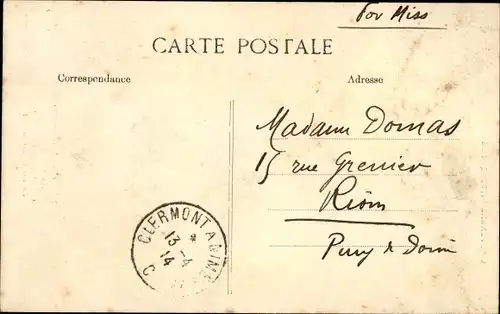 For Miss
CARTE POSTALE
Correspondance
Adresse
Madame Domas
15 rue Grenier
Riom
Puy de Dome
CLERMONT A NIMES
13-4
14
C